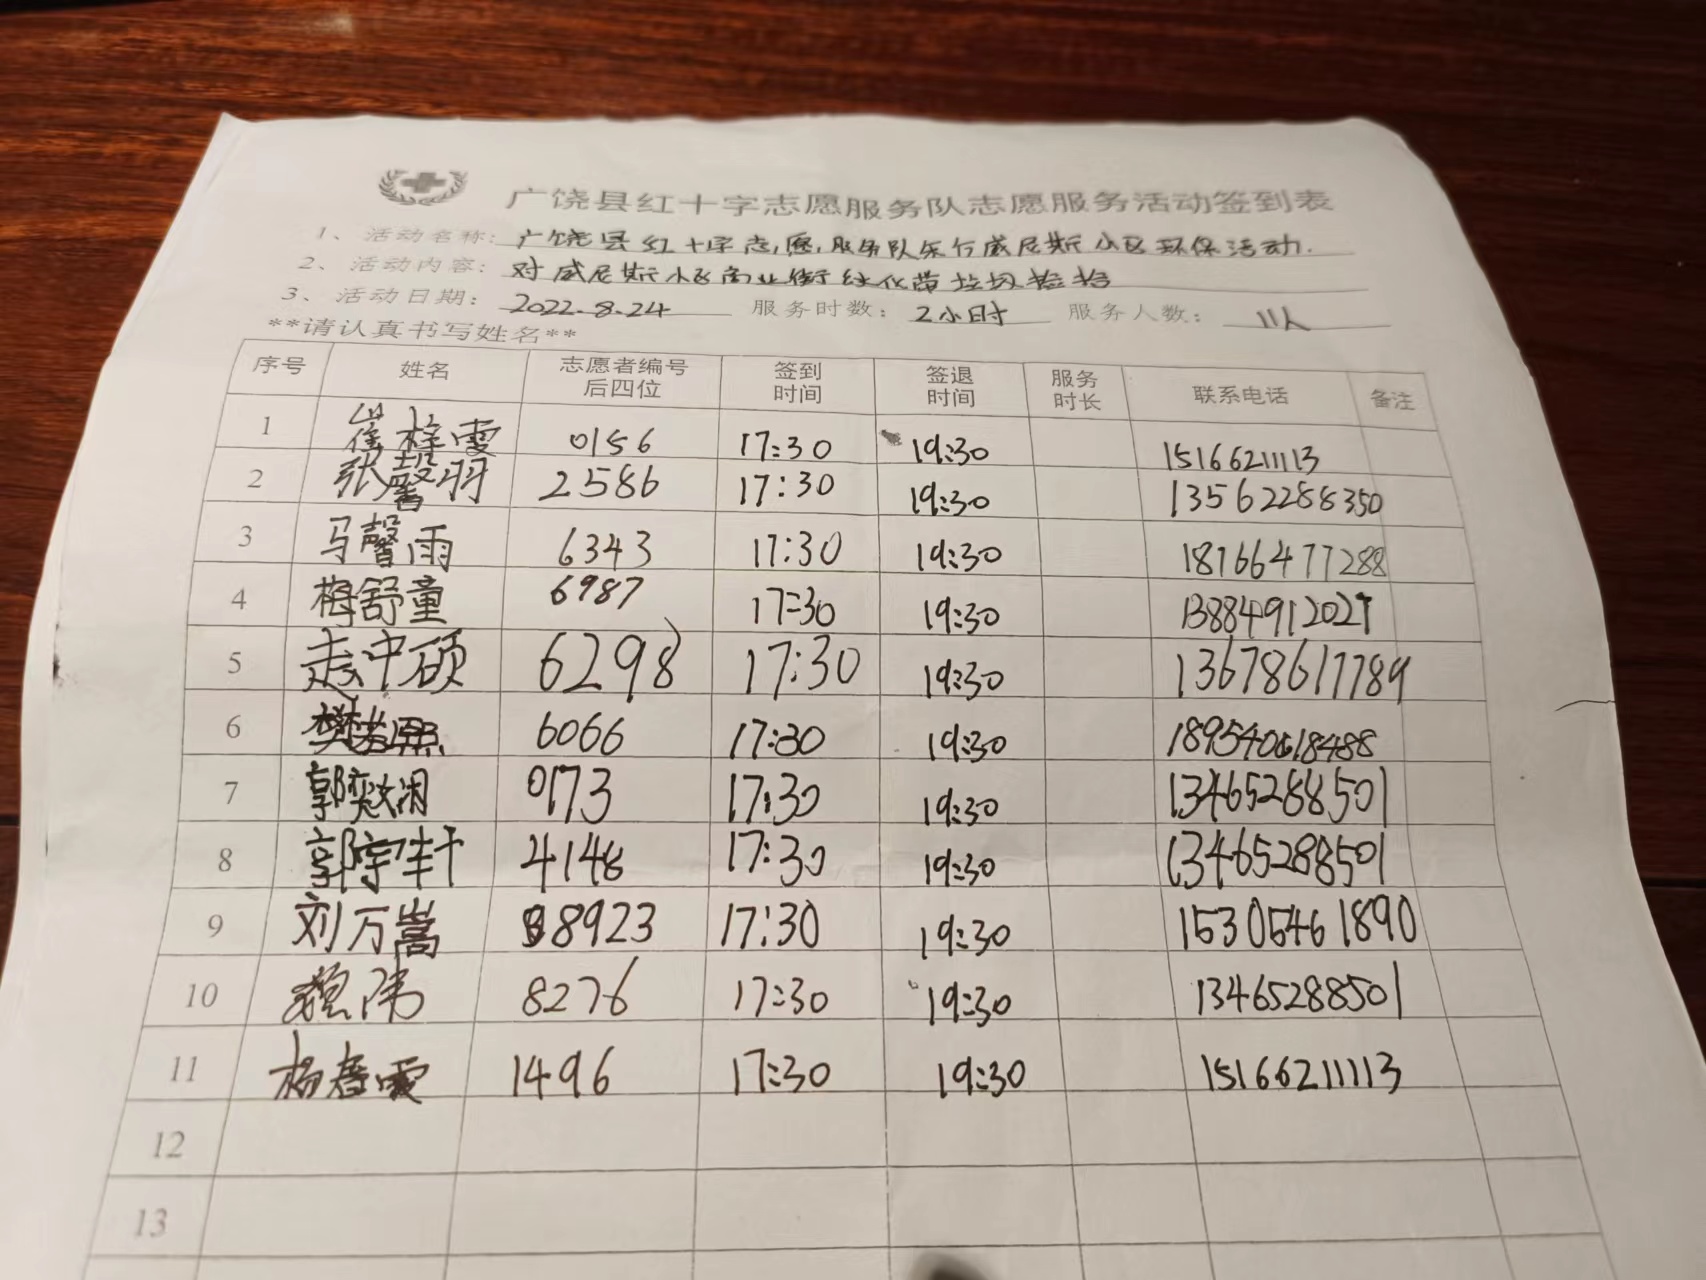 广饶县红十字志愿服务队志愿服务活动签到表
1、活动名称：广饶县红十字志愿服务队乐行威尼斯小区环保活动.
2、活动内容：对威尼斯小区商业街绿化带垃圾捡拾
3、活动日期：2022.8.24 服务时数：2小时 服务人数：11人
**请认真书写姓名**
序号 姓名 志愿者编号后四位 签到时间 签退时间 服务时长 联系电话 备注
1 崔梓雯 0156 17:30 19:30 15166211113
2 张馨羽 2586 17:30 19:30 13562288350
3 马馨雨 6343 17:30 19:30 18766477288
4 梅舒童 6987 17:30 19:30 13884912027
5 中硕 6298 17:30 19:30 13678617789
6 樊 6066 17:30 19:30
7 郭奕 0173 17:30 19:30 13465288501
8 郭宇轩 4148 17:30 19:30 13465288501
9 刘万嵩 8923 17:30 19:30 15305461890
10 魏伟 8276 17:30 19:30 13465288501
11 杨春霞 1496 17:30 19:30 15166211113
12
13